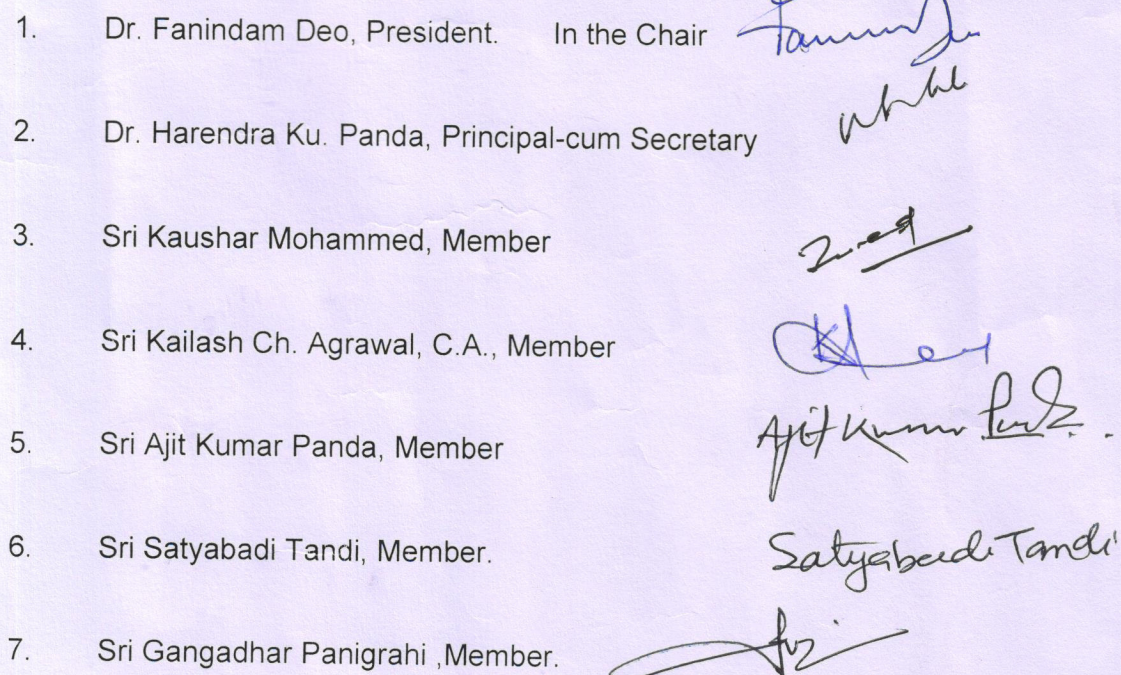 1. Dr. Fanindam Deo, President. In the Chair
2. Dr. Harendra Ku. Panda, Principal-cum Secretary
3. Sri Kaushar Mohammed, Member
4. Sri Kailash Ch. Agrawal, C.A., Member
5. Sri Ajit Kumar Panda, Member Ajit Kumar
6. Sri Satyabadi Tandi, Member. Satyabadi Tandi
7. Sri Gangadhar Panigrahi ,Member.